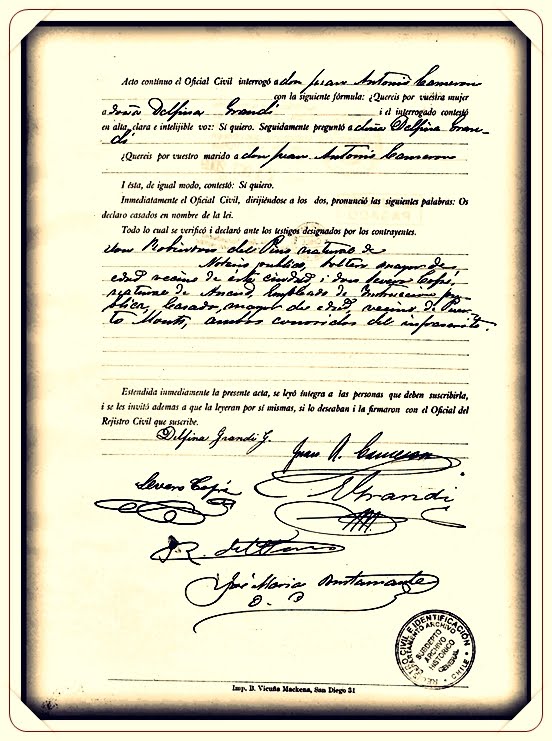 Acto contínuo el Oficial Civil interrogó a don Juan Antonio Cameron
con la siguiente fórmula: ¿Quereis por vuestra mujer
a doña Delfina Grandi i el interrogado contestó
en alta, clara e intelijible voz: Sí quiero. Seguidamente preguntó a doña Delfina Gran-
di
¿Quereis por vuestro marido a don Juan Antonio Cameron
I ésta, de igual modo, contestó: Sí quiero.
Inmediatamente el Oficial Civil, dirijiéndose a los dos, pronunció las siguientes palabras: Os
declaro casados en nombre de la lei.
Todo lo cual se verificó i declaró ante los testigos designados por los contrayentes.
don del Pino natural de
Notario público, soltero mayor de
edad vecino de ésta ciudad i don Severo Cofré,
natural de Ancud, Empleado de Instrucción pú-
blica, Casado, mayor de edad, vecino de Puer-
to Montt, ambos conocidos del infrascrito.
Estendida inmediatamente la presente acta, se leyó íntegra a las personas que deben suscribirla,
i se les invitó ademas a que la leyeran por sí mismas, si lo deseaban i la firmaron con el Oficial del
Registro Civil que suscribe.
Delfina Grandi J.
Juan A. Cameron
Severo Cofré
E Grandi
R. del Pino
José Maria Bustamante
O. C.
REGISTRO CIVIL E IDENTIFICACIÓN
DEPARTAMENTO ARCHIVO
SUBDEPTO
ARCHIVO
HISTORICO
GENERAL
CHILE
Imp. B. Vicuña Mackena, San Diego 31